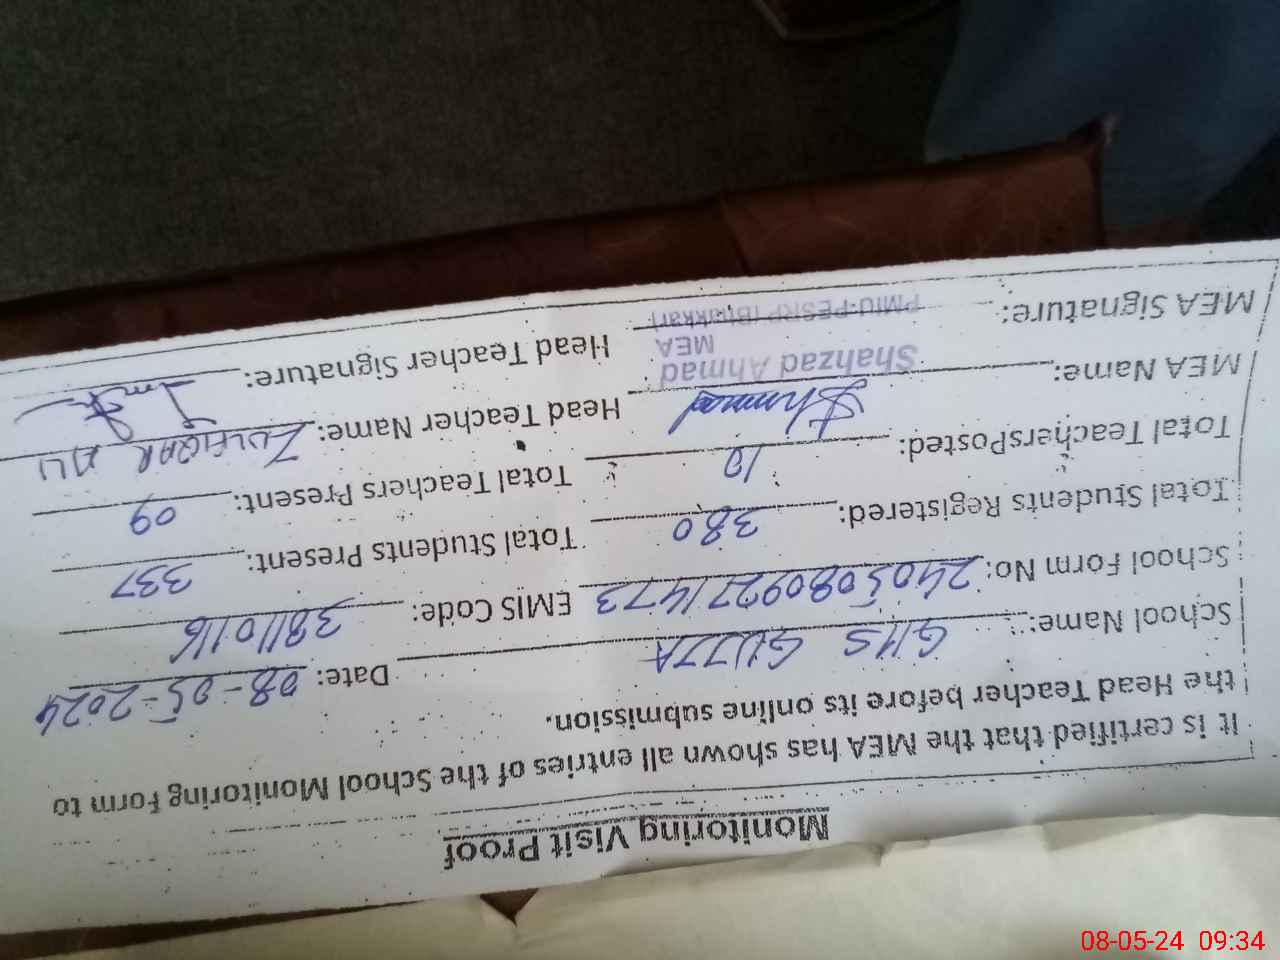 Monitoring Visit Proof
It is certified that the MEA has shown all entries of the School Monitoring Form to
the Head Teacher before its online submission.
School Name: GHS GUJJA Date: 08-05-2024
School Form No: 24050809271473 EMIS Code: 38110116
Total Students Registered: 380 Total Students Present: 337
Total TeachersPosted: 10 Total Teachers Present: 09
MEA Name: Head Teacher Name: ZULFIQAR ALI
Shahzad Ahmad
MEA
MEA Signature: PMIU-PESRP (Bhakkar) Head Teacher Signature:
08-05-24 09:34